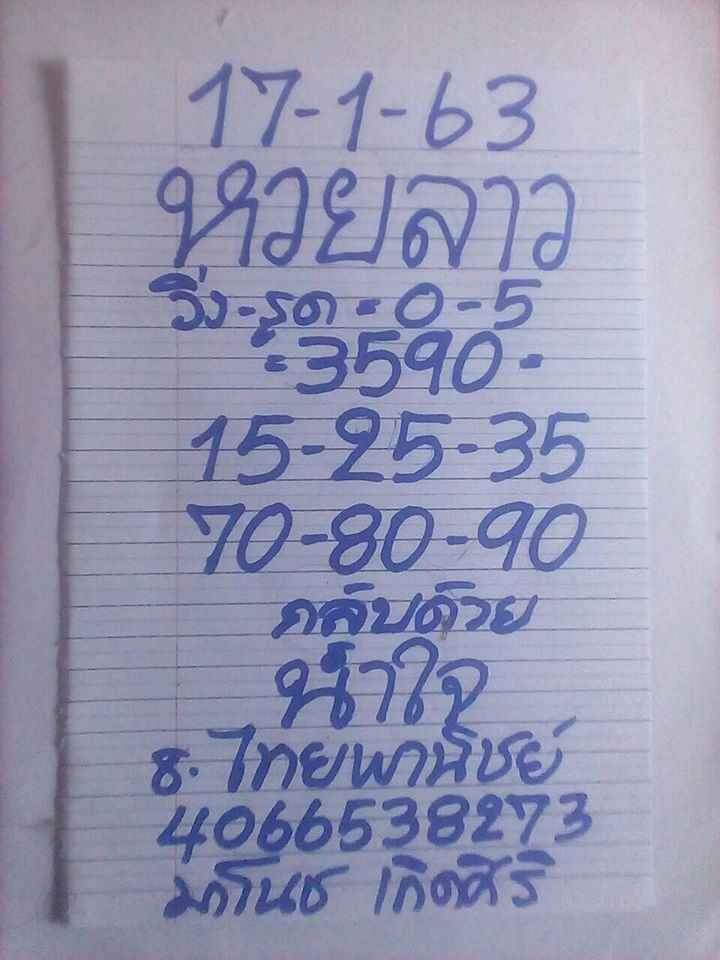 17-1-63
หวยลาว
วิ่ง-รูด = 0-5
= 3590 -
15-25-35
70-80-90
กลับด้วย
น้ำใจ
ธ. ไทยพานิชย์
4066538273
มาโนช เกิดศิริ